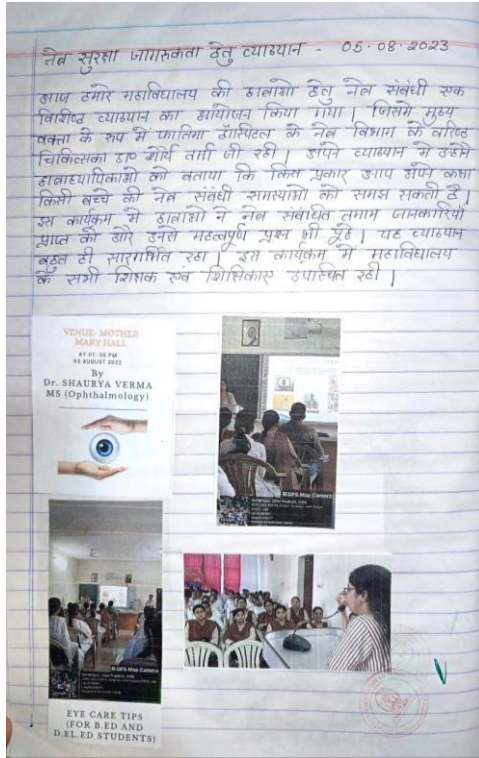 नेत्र सुरक्षा जागरूकता हेतु व्याख्यान - 05.08.2023
आज हमारे महाविद्यालय की छात्राओं हेतु नेत्र संबंधी एक
विशिष्ट व्याख्यान का आयोजन किया गया। जिसमें मुख्य
वक्ता के रूप में फातिमा हॉस्पिटल के नेत्र विभाग के वरिष्ठ
चिकित्सका डा० शौर्य वर्मा जी रही। अपने व्याख्यान में उन्होंने
छात्राध्यापिकाओं को बताया कि किस प्रकार आप अपने कक्षा
किसी बच्चे की नेत्र संबंधी समस्याओं को समझ सकती है।
इस कार्यक्रम में छात्राओं ने नेत्र संबंधित तमाम जानकारियाँ
प्राप्त की और उनसे महत्वपूर्ण प्रश्न भी पूछे। यह व्याख्यान
बहुत ही सारगर्भित रहा। इस कार्यक्रम में महाविद्यालय
के सभी शिक्षक एवं शिक्षिकाएं उपस्थित रही।
VENUE- MOTHER
MARY HALL
AT 01: 30 PM
05 AUGUST 2022
By
Dr. SHAURYA VERMA
MS (Ophthalmology)
GPS Map Camera
GPS Map Camera
EYE CARE TIPS
(FOR B.ED AND
D.EL.ED STUDENTS)